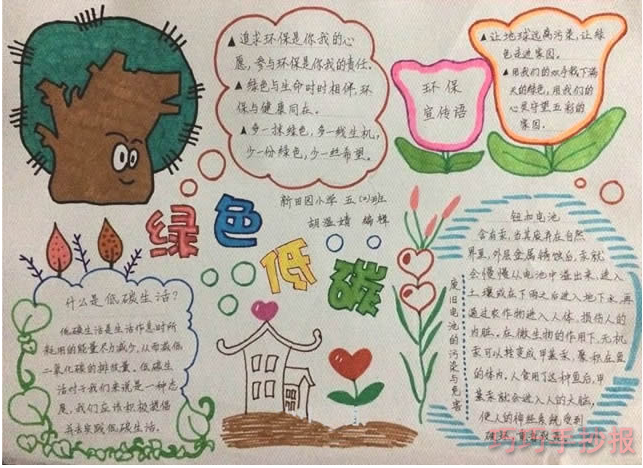 ▲追求环保是你我的心
愿，参与环保是你我的责任。
▲绿色与生命时时相伴，环
保与健康同在。
▲多一抹绿色，多一线生机，
少一份绿色，少一丝希望。
环保
宣传语
▲让地球远离污染，让绿
色走进家园。
▲用我们的双手栽下满
天的绿色，用我们的
心灵守望五彩的
家园。
新田园小学 五(2)班
编辑
绿色
低碳
什么是低碳生活？
低碳生活是生活作息时所
耗用的能量尽力减少，从而减低
二氧化碳的排放量。低碳生
活对于我们来说是一种态
度，我们应该积极提倡
并去实践低碳生活。
废旧电池的污染与危害
钮扣电池
含有汞，当其废弃在自然
界里，外层金属锈蚀后，汞就
会慢慢从电池中溢出来，进入
土壤或在下雨之后进入地下水，再
通过农作物进入人体，损伤人的
内脏。在微生物的作用下，无机
汞可以转变成甲基汞，聚积在鱼
的体内，人食用了这种鱼后，甲
基汞就会进入人的大脑，
使人的神经系统受到
破坏
巧巧手抄报